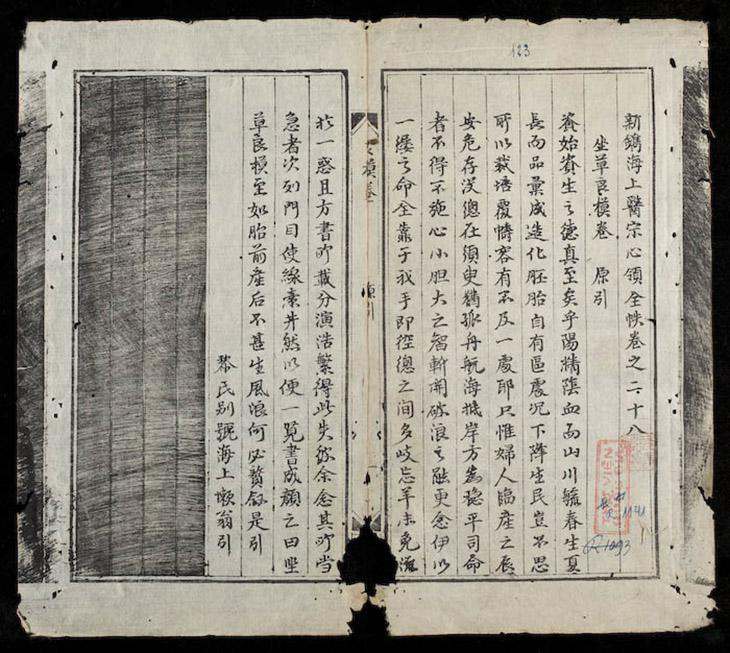 123
新鐫海上醫宗心領全帙卷之二十八
坐草良模卷 原引
資始資生之德真至矣乎陽精陰血而山川毓春生夏
長而品彙成造化胚胎自有區處況下降生民豈不思
所以栽培覆幬容有不及一處耶只惟婦人臨產之辰
安危存沒總在須臾鷁孤舟航海抵岸方為穩平司命
者不得不施心小胆大之智斬開破浪之融更念伊以
一縷之命全靠于我手即徑總之间多岐忘羊未免流
於一惑且方書所載分演浩繁得此失彼余愈其所当
急者次列門目使線索井然以便一覧書成顏之曰坐
草良模至如胎前產后不甚生風浪何必贅叙是引
黎民别號海上懶翁引
模卷
原引
R.1093